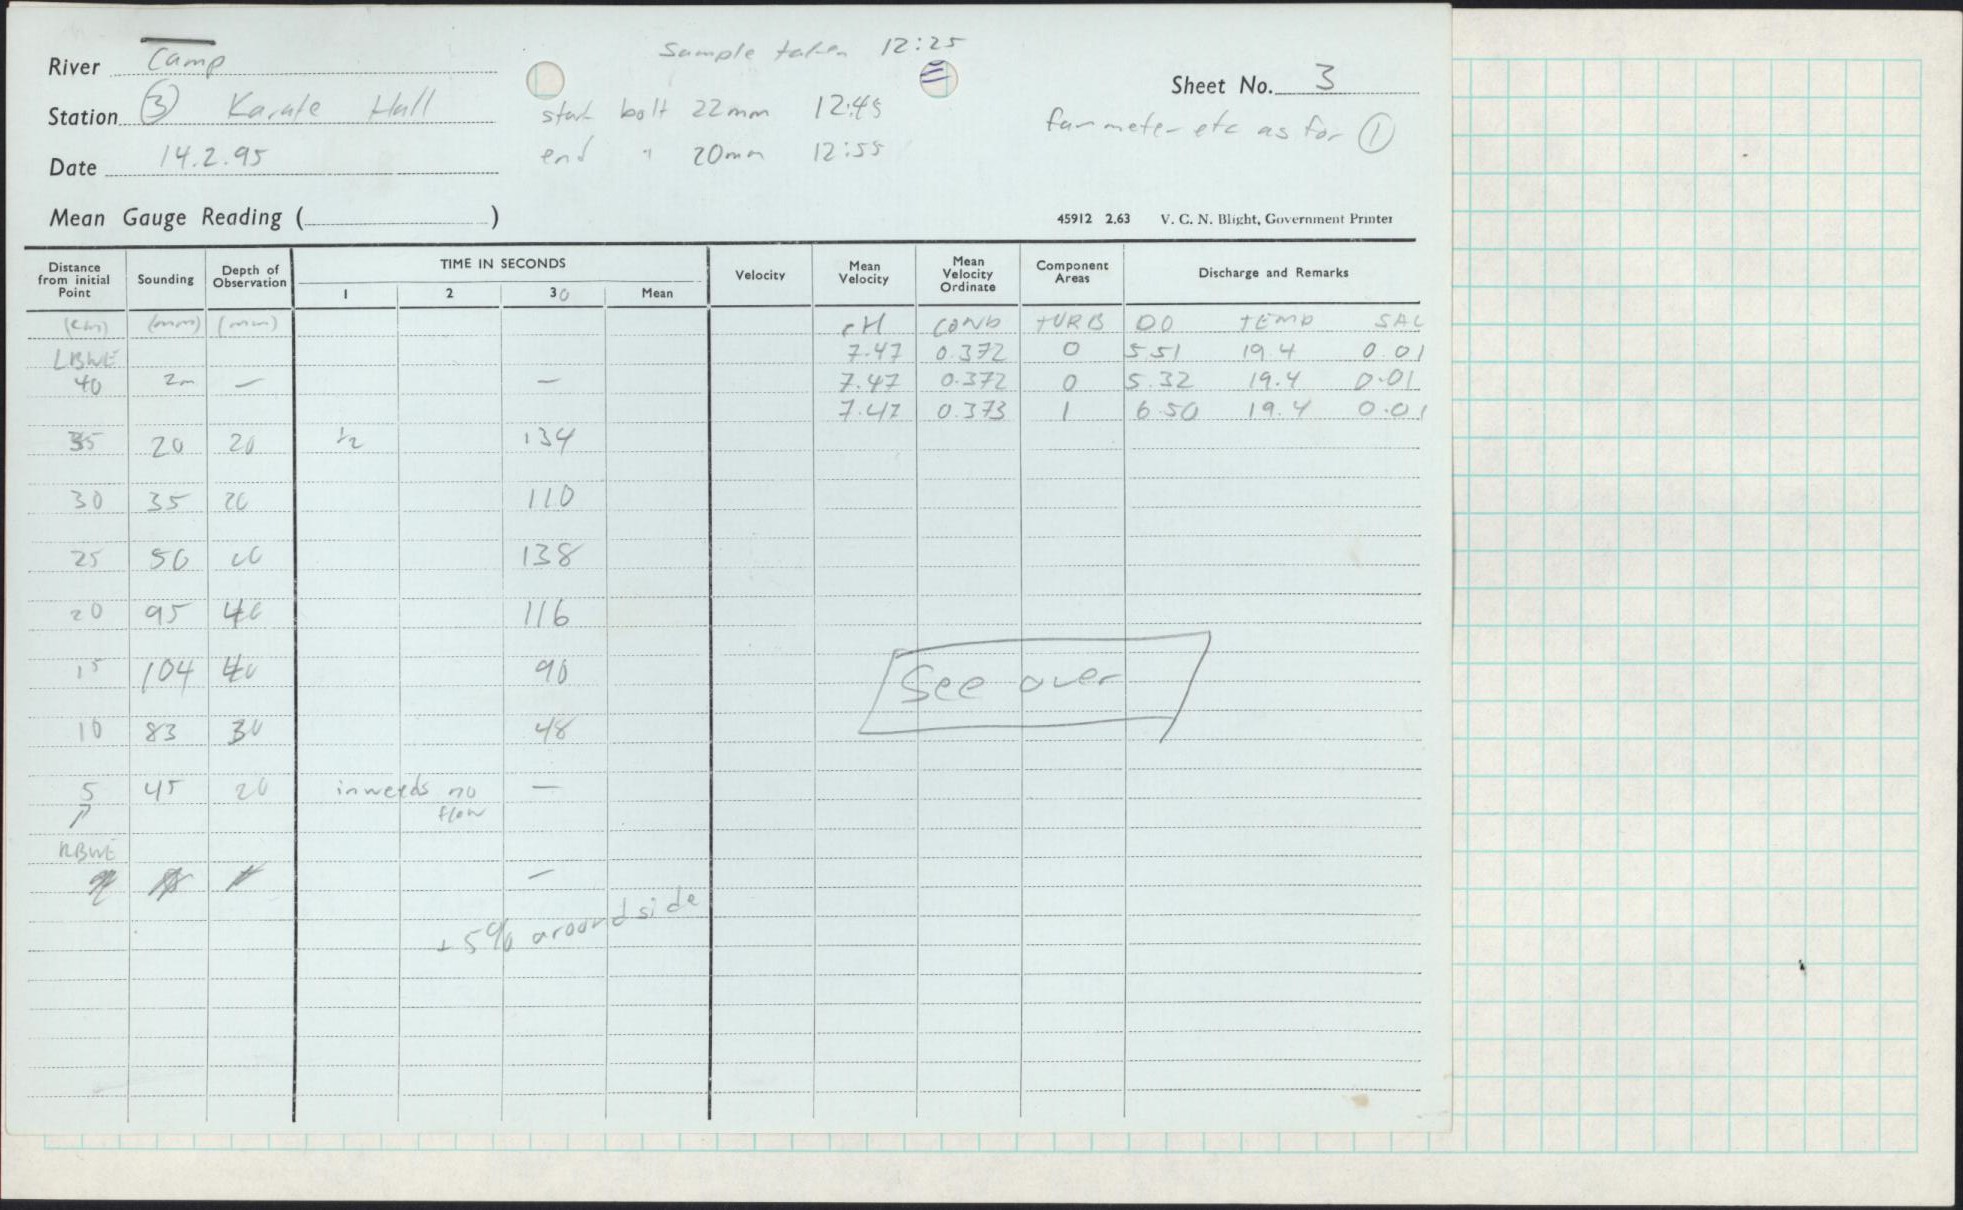 River Camp
Sample taken 12:25
Sheet No. 3
Station ③ Karate Hall
start bolt 22mm 12:45
fan meter etc as for ①
Date 14.2.95
end " 20mm 12:55
Mean Gauge Reading ( )
45912 2.63 V. C. N. Blight, Government Printer
Distance from initial Point
Sounding
Depth of Observation
TIME IN SECONDS
1 2 30 Mean
Velocity
Mean Velocity
Mean Velocity Ordinate
Component Areas
Discharge and Remarks
(cm) (mm) (mm) pH COND TURB DO TEMP SAL
LBWE 7.47 0.372 0 5.51 19.4 0.01
40 2m — — 7.47 0.372 0 5.32 19.4 0.01
7.47 0.373 1 6.50 19.4 0.01
35 20 20 ½ 134
30 35 20 110
25 50 138
20 95 40 116
15 104 40 90
10 83 30 48
See over
5 45 20 in weeds no flow —
RBWE
—
+ 5% around side